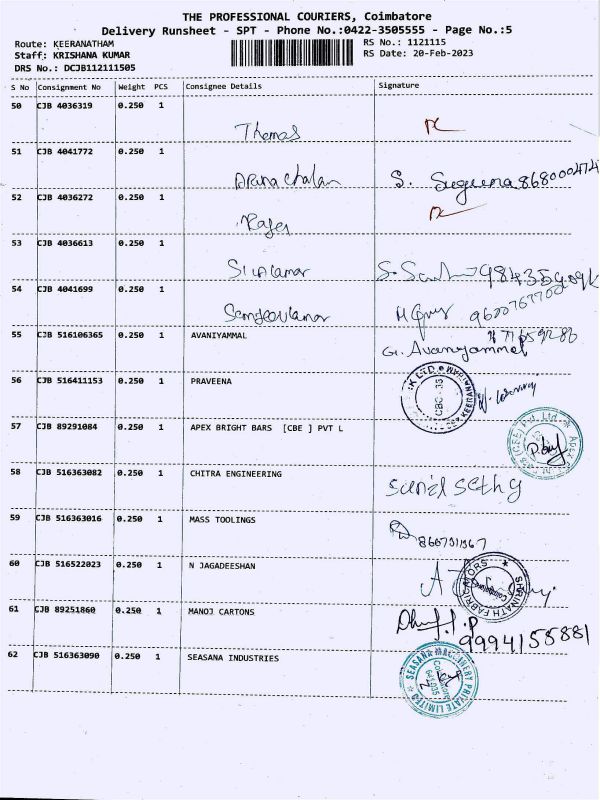 THE PROFESSIONAL COURIERS, Coimbatore
Delivery Runsheet - SPT - Phone No.:0422-3505555 - Page No.:5
Route: KEERANATHAM
Staff: KRISHANA KUMAR
DRS No.: DCJB112111505
RS No.: 1121115
RS Date: 20-Feb-2023
S No Consignment No Weight PCS Consignee Details Signature
50 CJB 4036319 0.250 1
Thomas
51 CJB 4041772 0.250 1
Aruna chalam S. Suguna 868000474
52 CJB 4036272 0.250 1
53 CJB 4036613 0.250 1
Siva kumar
54 CJB 4041699 0.250 1
9600767700
55 CJB 516106365 0.250 1 AVANIYAMMAL
G. Avaniyammal
56 CJB 516411153 0.250 1 PRAVEENA
57 CJB 89291084 0.250 1 APEX BRIGHT BARS [CBE ] PVT L
58 CJB 516363082 0.250 1 CHITRA ENGINEERING
sunil sethy
59 CJB 516363016 0.250 1 MASS TOOLINGS
60 CJB 516522023 0.250 1 N JAGADEESHAN
SHRINATH FABRICATORS
61 CJB 89251860 0.250 1 MANOJ CARTONS
9994158881
62 CJB 516363090 0.250 1 SEASANA INDUSTRIES
SEASANA MACHINERY PRIVATE LIMITED